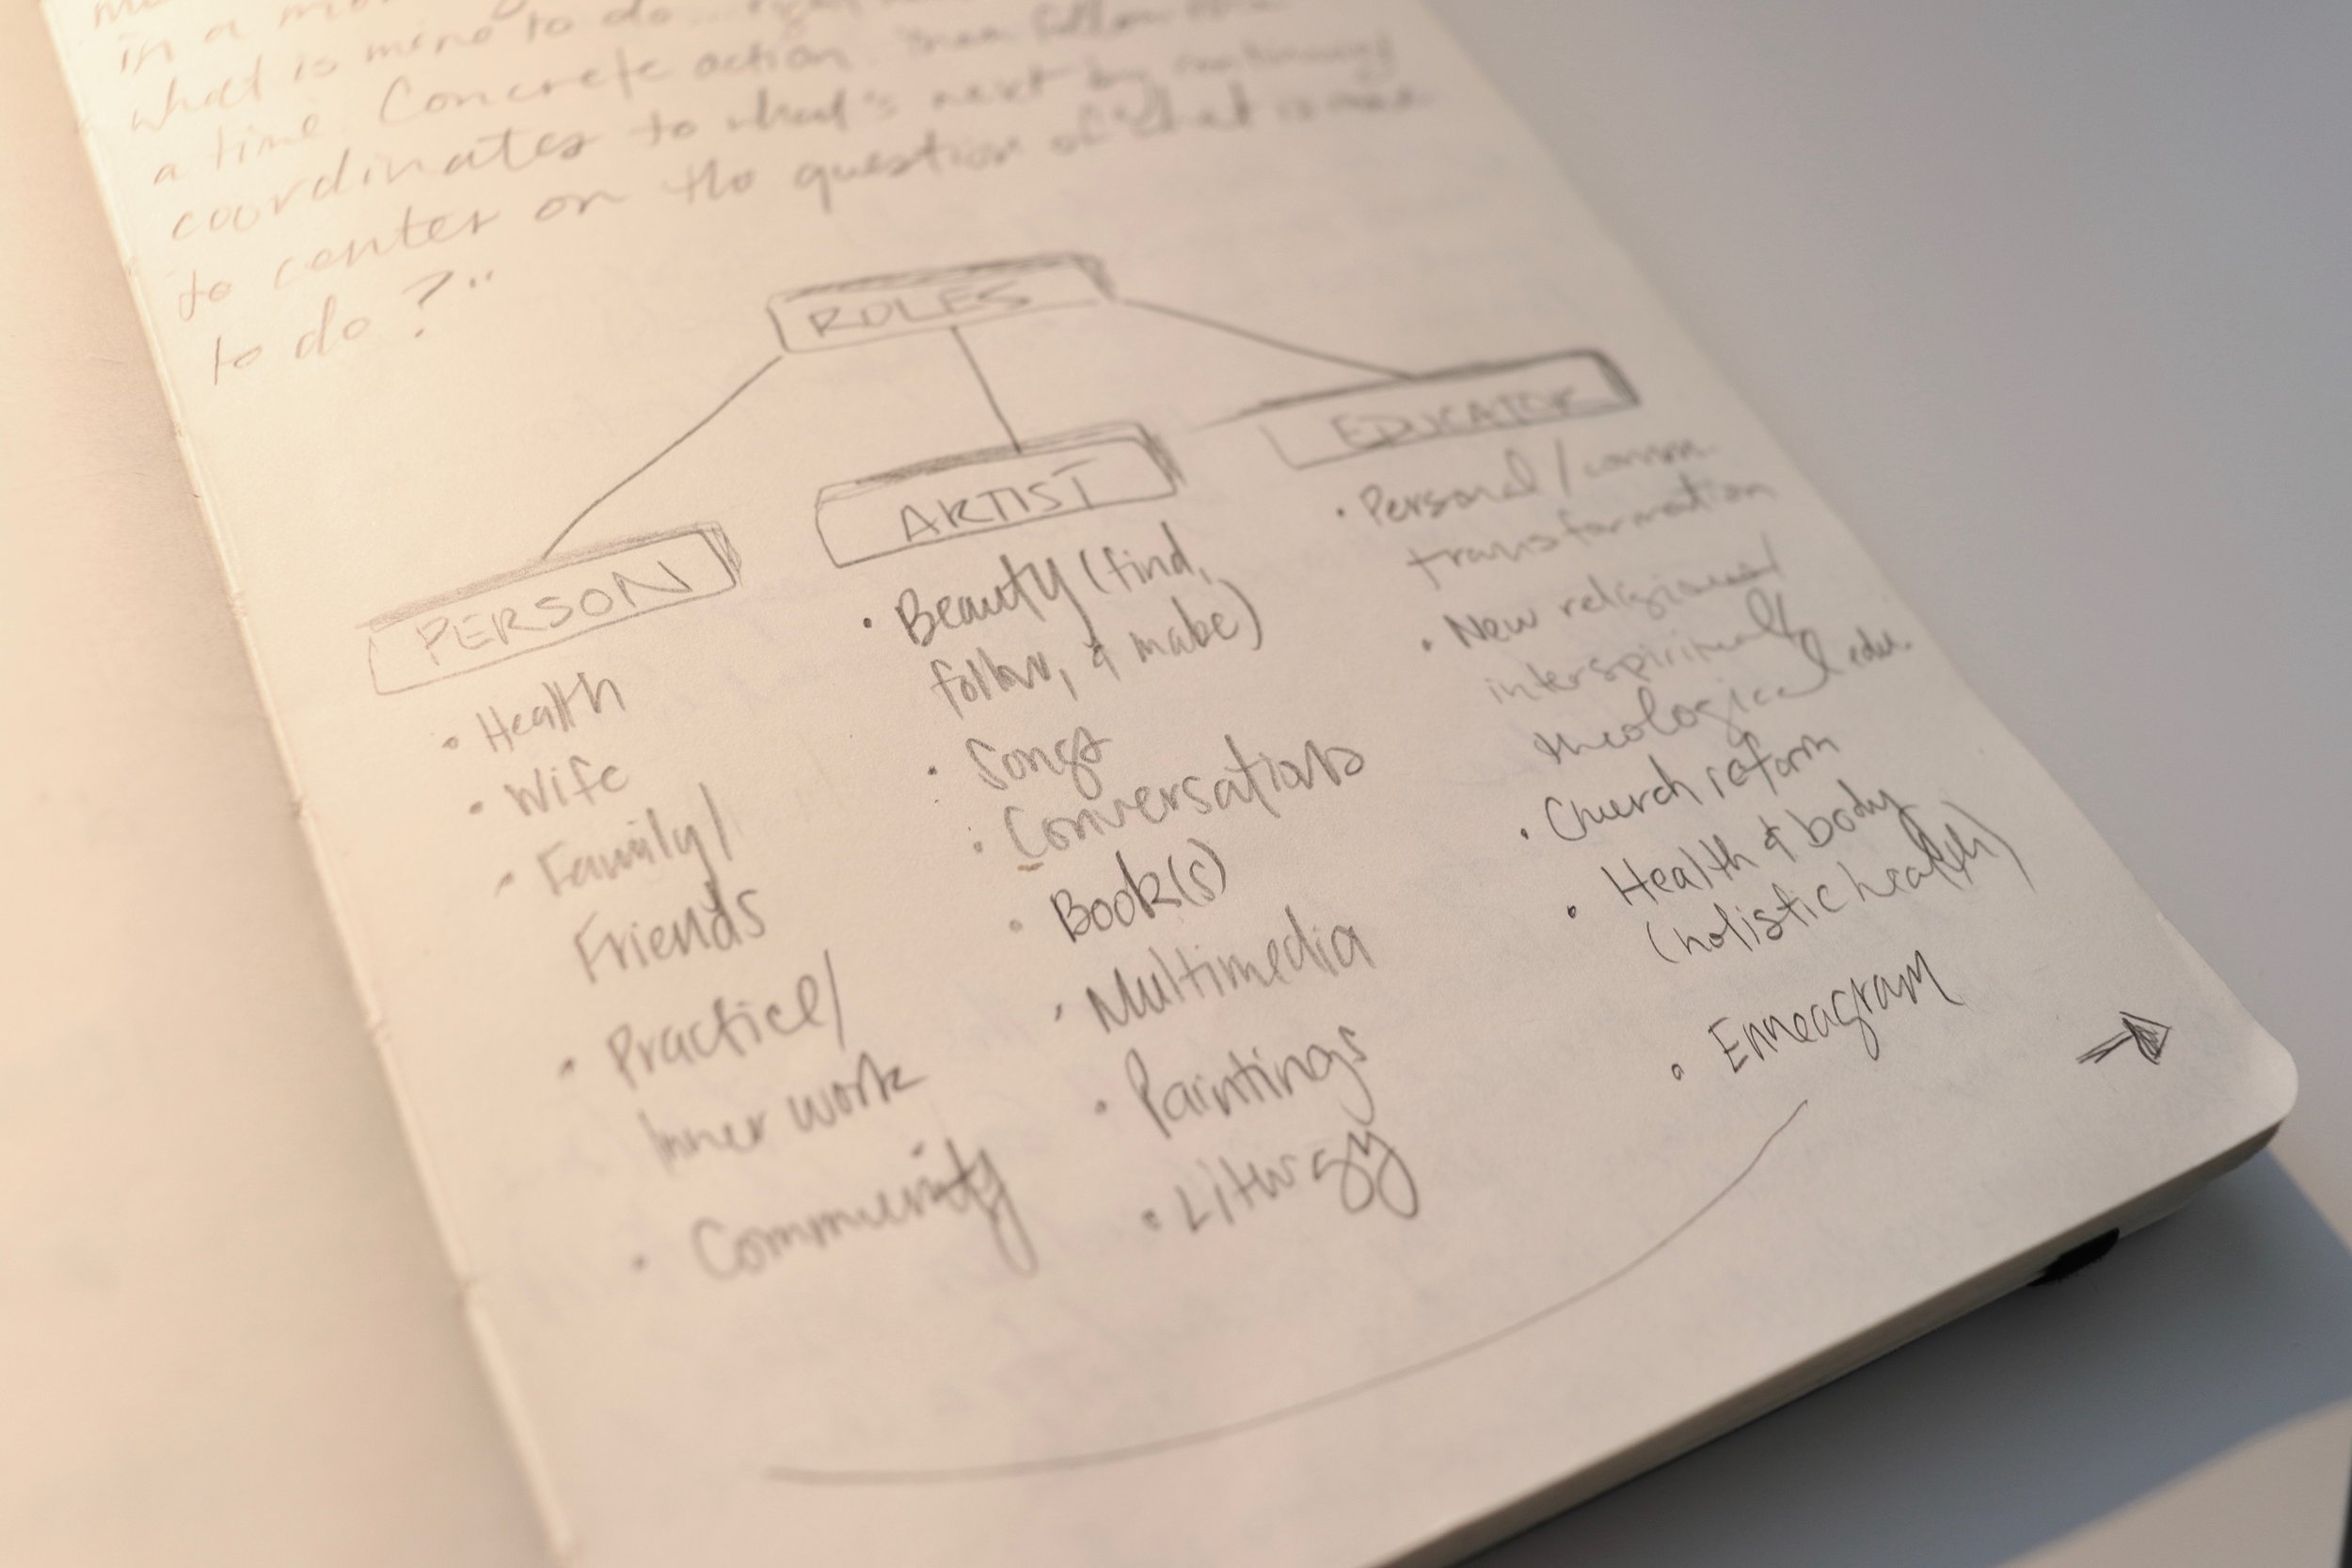 in a
what is mine to do...
a time. Concrete action. Then follow
coordinates to what's next by continuing
to center on the question of "what is mine
to do?"
ROLES
PERSON
• Health
• Wife
• Family/
Friends
• Practice/
Inner work
• Community
ARTIST
• Beauty (find,
follow, & make)
• Songs
• Conversations
• Book(s)
• Multimedia
• Paintings
• Liturgy
EDUCATOR
• Personal/comm.
transformation
• New religious/
interspiritual/
theological edu.
• Church reform
• Health & body
(holistic health)
• Enneagram